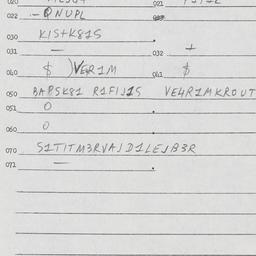 020 021
022 -QNUPL
030 KIS+K81S
031 — 032 +
040 $ )VER1M 041 $
050 BAPSK81 R1FIJ1S VE4R1MKROUT
051 0
060 0
070 S1TITM3RVAJD1LEJB3R
071 —